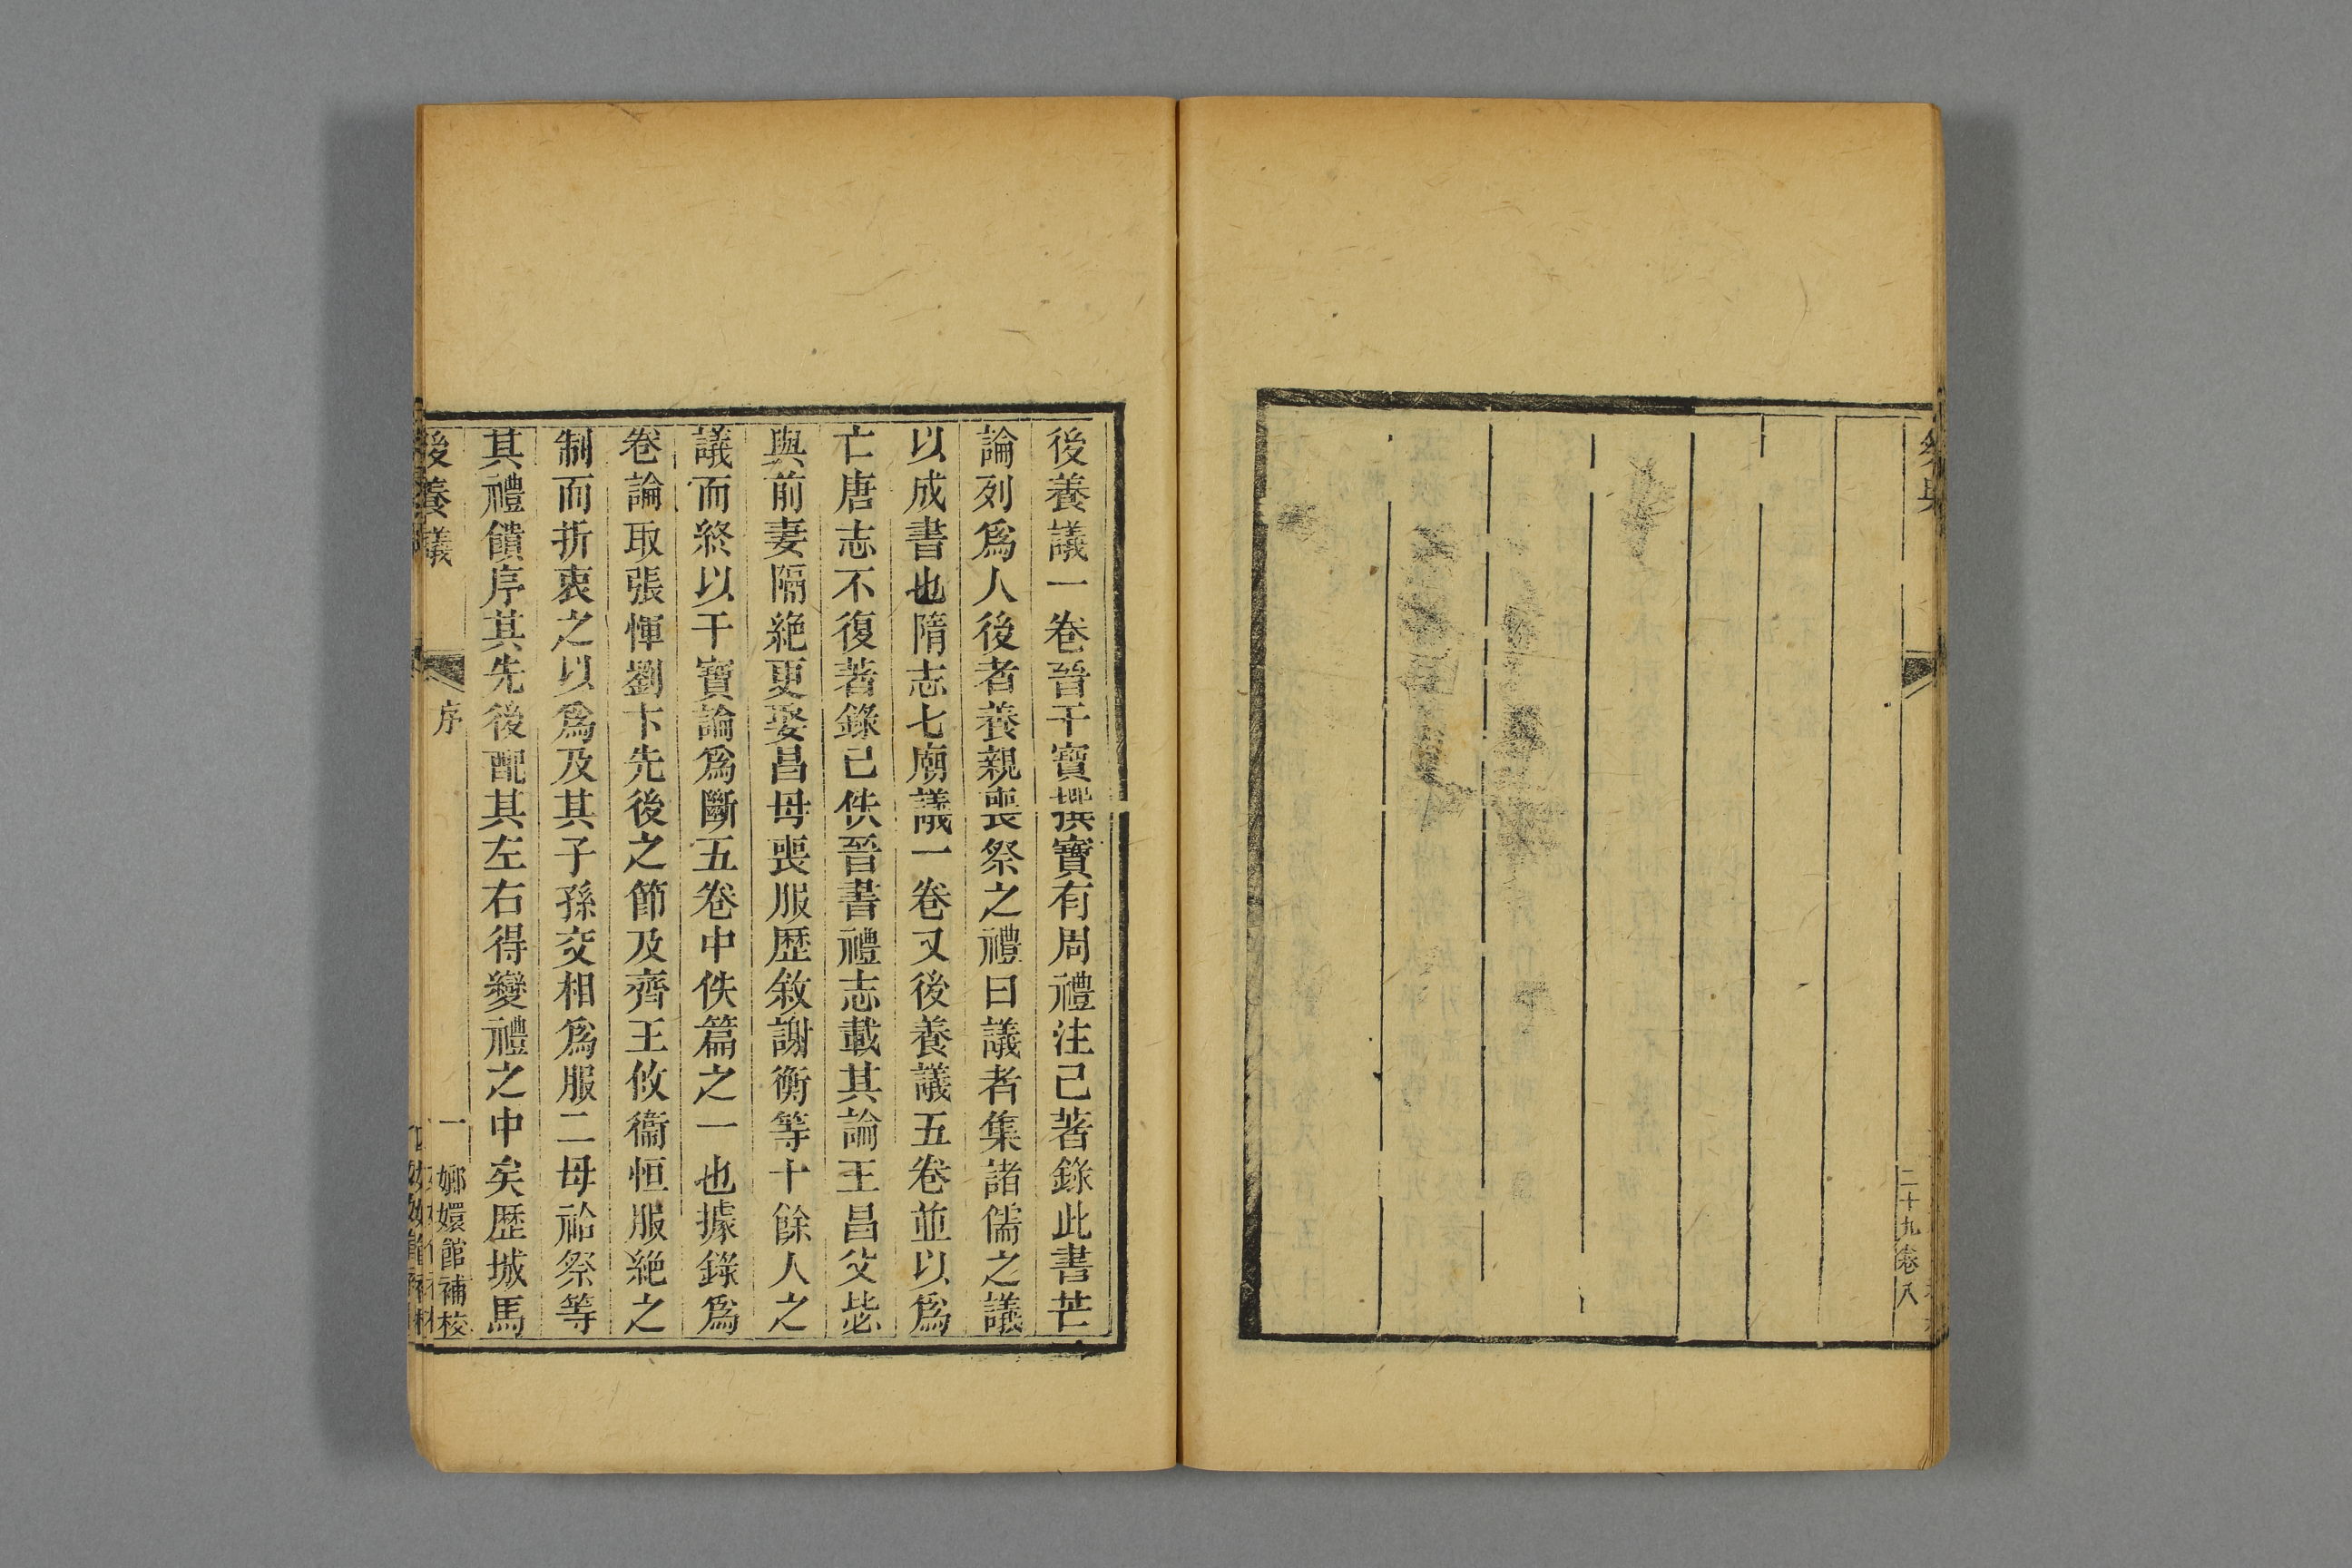 二十九卷八
後養議一卷晉干寶撰寶有周禮注已著錄此書芒
論列爲人後者養親喪祭之禮曰議者集諸儒之議
以成書也隋志七廟議一卷又後養議五卷並以爲
亡唐志不復著錄已佚晉書禮志載其論王昌父毖
與前妻隔絶更娶昌母喪服歷敘謝衡等十餘人之
議而終以干寶論爲斷五卷中佚篇之一也據錄爲
卷論取張惲劉卞先後之節及齊王攸衞恒服絶之
制而折衷之以爲及其子孫交相爲服二母祫祭等
其禮饋序其先後配其左右得變禮之中矣歷城馬
後養議
序
一
嫏嬛館補校